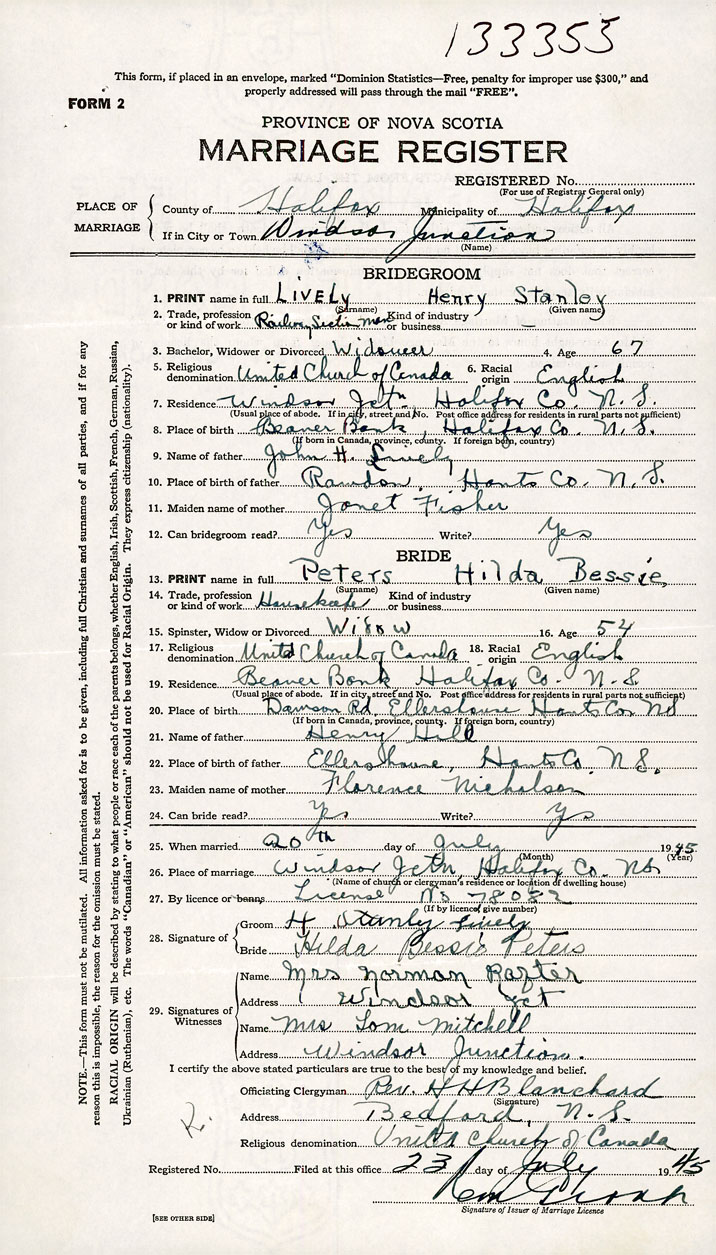 133355
This form, if placed in an envelope, marked "Dominion Statistics—Free, penalty for improper use $300," and
properly addressed will pass through the mail "FREE".
FORM 2
PROVINCE OF NOVA SCOTIA
MARRIAGE REGISTER
REGISTERED No.
(For use of Registrar General only)
PLACE OF MARRIAGE
County of Halifax Municipality of Halifax
If in City or Town Windsor Junction
(Name)
BRIDEGROOM
1. PRINT name in full LIVELY Henry Stanley
(Surname) (Given name)
2. Trade, profession or kind of work Railway Section man Kind of industry or business —
3. Bachelor, Widower or Divorced Widower 4. Age 67
5. Religious denomination United Church of Canada 6. Racial origin English
7. Residence Windsor Jctn, Halifax Co. N.S.
(Usual place of abode. If in city, street and No. Post office address for residents in rural parts not sufficient)
8. Place of birth Beaver Bank, Halifax Co. N.S.
(If born in Canada, province, county. If foreign born, country)
9. Name of father John H. Lively
10. Place of birth of father Rawdon, Hants Co. N.S.
11. Maiden name of mother Janet Fisher
12. Can bridegroom read? Yes Write? Yes
BRIDE
13. PRINT name in full Peters Hilda Bessie
(Surname) (Given name)
14. Trade, profession or kind of work Housekeeper Kind of industry or business
15. Spinster, Widow or Divorced Widow 16. Age 54
17. Religious denomination United Church of Canada 18. Racial origin English
19. Residence Beaver Bank Halifax Co. N.S
(Usual place of abode. If in city, street and No. Post office address for residents in rural parts not sufficient)
20. Place of birth Dawson Rd, Ellershouse Hants Co NS
(If born in Canada, province, county. If foreign born, country)
21. Name of father Henry Hill
22. Place of birth of father Ellershouse, Hants Co. N.S.
23. Maiden name of mother Florence Nicholson
24. Can bride read? Yes Write? Yes
25. When married 20th day of July 1945
(Month) (Year)
26. Place of marriage Windsor Jctn, Halifax Co. NS
(Name of church or clergyman's residence or location of dwelling house)
27. By licence or banns License No 78032
(If by licence, give number)
28. Signature of Groom H Stanley Lively
Bride Hilda Bessie Peters
29. Signatures of Witnesses
Name Mrs Norman
Address Windsor Jct
Name Mrs Tom Mitchell
Address Windsor Junction.
I certify the above stated particulars are true to the best of my knowledge and belief.
Officiating Clergyman Rev. H H Blanchard
(Signature)
Address Bedford, N.S.
Religious denomination United Church of Canada
Registered No. Filed at this office 23 day of July 1945
Signature of Issuer of Marriage Licence
[SEE OTHER SIDE]
NOTE.—This form must not be mutilated. All information asked for is to be given, including full Christian and surnames of all parties, and if for any
reason this is impossible, the reason for the omission must be stated.
RACIAL ORIGIN will be described by stating to what people or race each of the parents belongs, whether English, Irish, Scottish, French, German, Russian,
Ukrainian (Ruthenian), etc. The words "Canadian" or "American" should not be used for Racial Origin. They express citizenship (nationality).